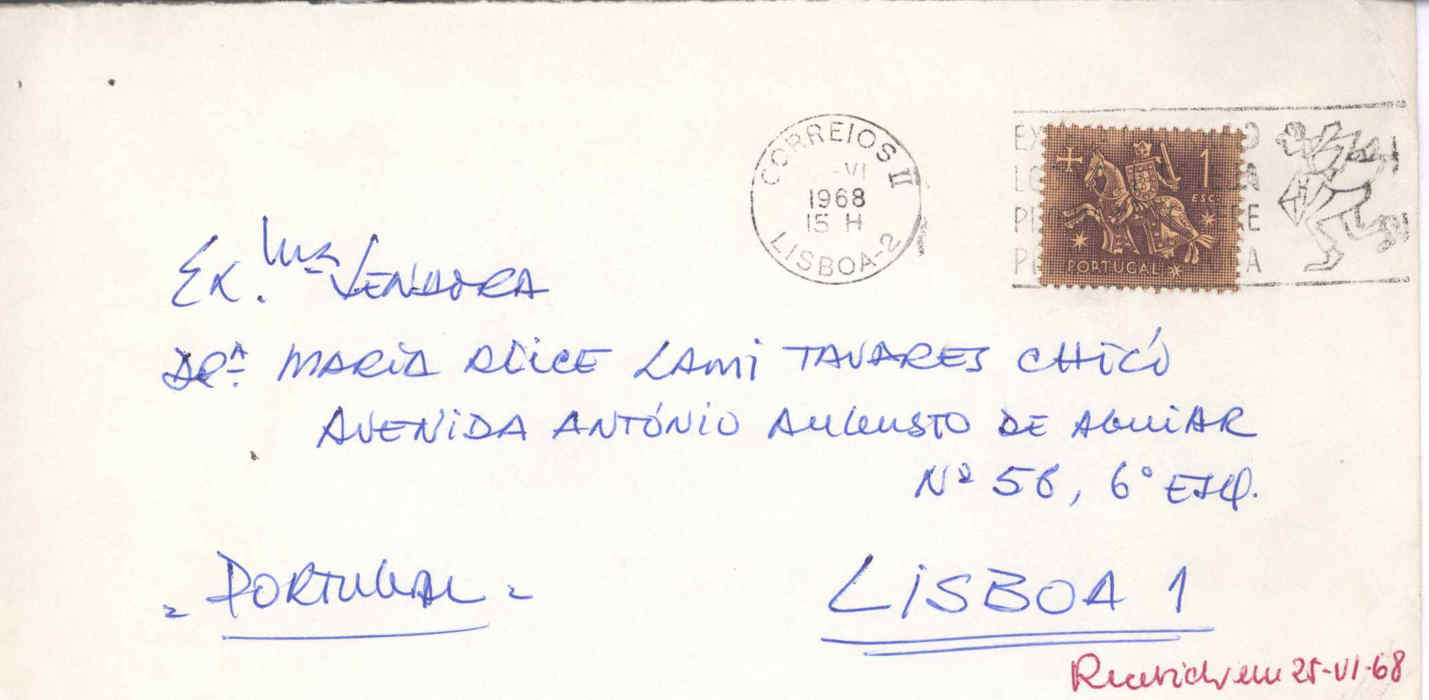 CORREIOS II
-VI
1968
15 H
LISBOA-2
1
ESC.
PORTUGAL
Ex.ma SENHORA
DRA MARIA ALICE LAMI TAVARES CHICÓ
AVENIDA ANTÓNIO AUGUSTO DE AGUIAR
Nº 56, 6º ESQ.
- PORTUGAL -
LISBOA 1
Recebido em 25-VI-68